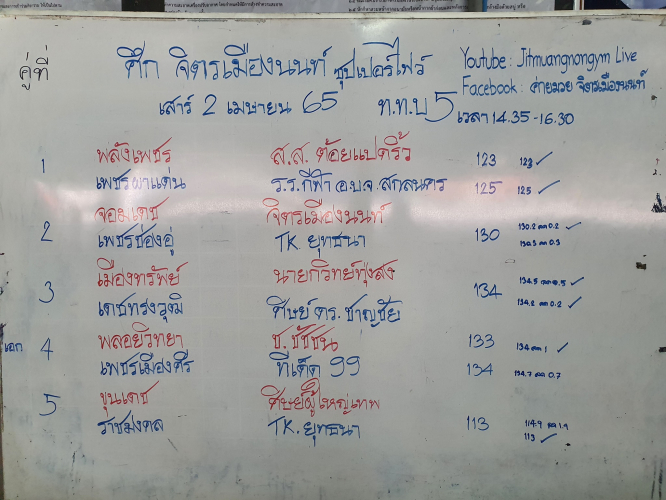 คู่ที่
ศึก จิตรเมืองนนท์ ซุปเปอร์ไฟว์
เสาร์ 2 เมษายน 65 ท.ท.บ 5
Youtube : Jitmuangnongym Live
Facebook : ค่ายมวย จิตรเมืองนนท์
เวลา 14.35 -16.30
1 พลังเพชร ส.ส. ต้อยแปดริ้ว 123 123 ✓
เพชรผาแด่น ร.ร.กีฬา อ.บ.จ สกลนคร 125 125 ✓
2 จอมเดช จิตรเมืองนนท์ 130 130.2 ลด 0.2 ✓
เพชรช่องอู่ TK ยุทธนา 130.3 ลด 0.3
3 เมืองทรัพย์ นายกวิทย์ทุ่งสง 134 134.5 ลด 0.5 ✓
เดชทรงวุฒิ ศิษย์ ดร. ชาญชัย 134.2 ลด 0.2 ✓
เอก 4 พลอยวิทยา ช. ชัชชน 133 134 ลด 1 ✓
เพชรเมืองศรี ที่เด็ด 99 134 134.7 ลด 0.7
5 ขุนเดช ศิษย์ผู้ใหญ่เทพ 113 114.9 ลด 1.9
ราชมงคล TK. ยุทธนา 113 ✓